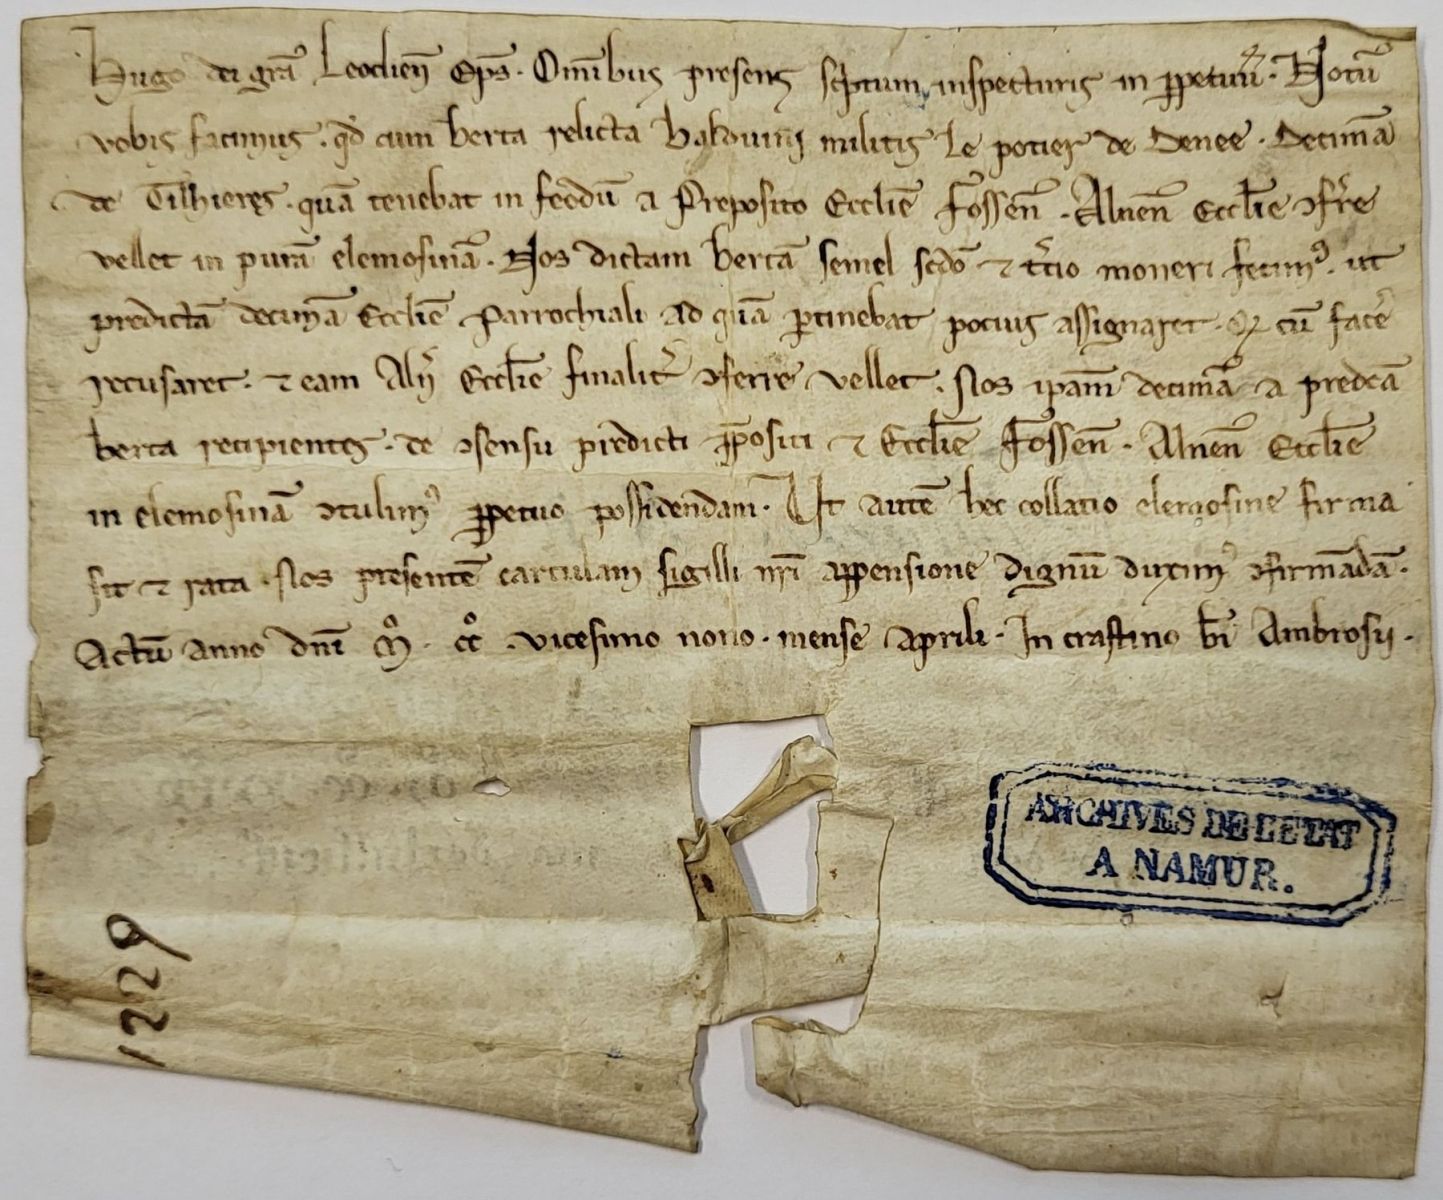 Hugo dei gr̄a Leodień Ep̄s. Om̄ibus presens sc̓ptum inspecturis in ꝑpetuū. Notū
vobis facimus. qd̓ cum berta relicta balduini militis le potier de Denee. Decimā
de Tilhieres. quā tenebat in feodū a Preposito Eccl̄ie Fosseñ. Alneñ Eccl̄ie ꝯfr̄e
vellet in purā elemosinā. Nos dictam bertā semel scd̄o ⁊ t̓cio moneri fecimꝰ. ut
predictā decimā Eccl̄ie Parrochiali ad quā ꝑtinebat pocius assignaret. Q̓ cū fac̓e
recusaret. ⁊ eam Alij̓ Eccl̄ie finalit̓ ꝯferre vellet. Nos ipam̄ decimā a predc̄a
berta recipientes. de ꝯsensu pred̄icti p̄positi ⁊ Eccl̄ie Fosseñ. Alneñ Eccl̄ie
in elemosinā ꝯtulimꝰ ꝑpetuo possidendam. Ut autē hec collatio elemosine firma
sit ⁊ rata. Nos presentē cartulam sigilli nr̄i appensione dignū duximꝰ ꝯfirmādā.
Actū anno dn̄i Mͦ. CCͦ. vicesimo nono. mense aprili. In crastino bī Ambrosij.
ARCHIVES DE L'ETAT
A NAMUR.
1229